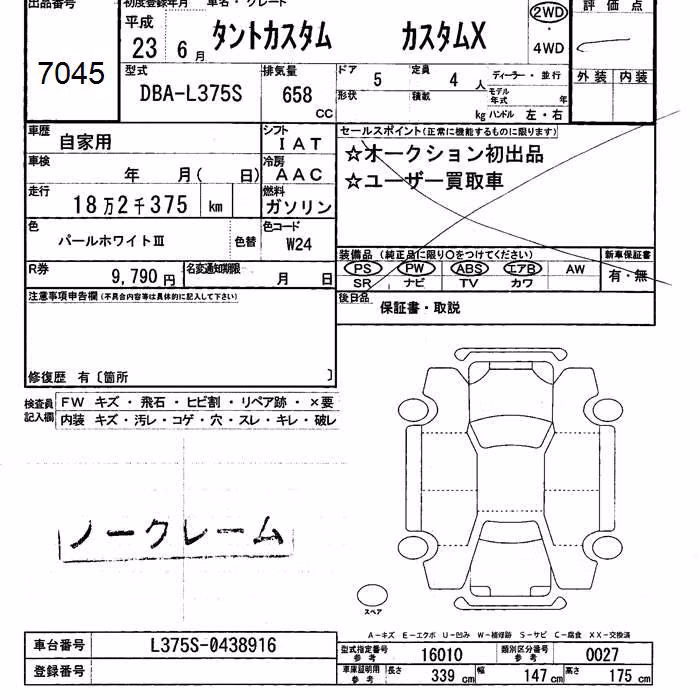 出品番号
7045
初度登録年月 車名・グレード
平成 23 6月 タントカスタム カスタムX 2WD・4WD
評価点
外装 内装
型式 DBA-L375S
排気量 658 CC
ドア 5 定員 4人 ディーラー・並行
形状 積載 kg モデル年式 年
ハンドル 左・右
車歴 自家用
シフト IAT
車検 年 月( 日)
冷房 AAC
走行 18万2千375 km
燃料 ガソリン
色 パールホワイトⅢ 色替
色コード W24
R券 9,790円 名変通知期限 月 日
セールスポイント(正常に機能するものに限ります)
☆オークション初出品
☆ユーザー買取車
装備品 (純正品に限り○をつけてください)
PS PW ABS エアB AW
SR ナビ TV カワ
新車保証書
有・無
後日品 保証書・取説
注意事項申告欄(不具合内容等は具体的に記入して下さい)
修復歴 有〔箇所 〕
検査員記入欄
FW キズ・飛石・ヒビ割・リペア跡・×要
内装 キズ・汚レ・コゲ・穴・スレ・キレ・破レ
ノークレーム
スペア
A-キズ E-エクボ U-凹み W-補修跡 S-サビ C-腐食 XX-交換済
車台番号 L375S-0438916
登録番号
型式指定番号 参考 16010 類別区分番号 参考 0027
車庫証明用 参考 長さ 339cm 幅 147cm 高さ 175cm